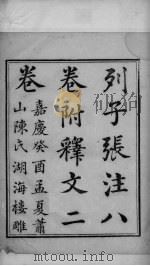 列子張注八
卷附釋文二
卷
嘉慶癸酉孟夏蕭
山陳氏湖海樓雕